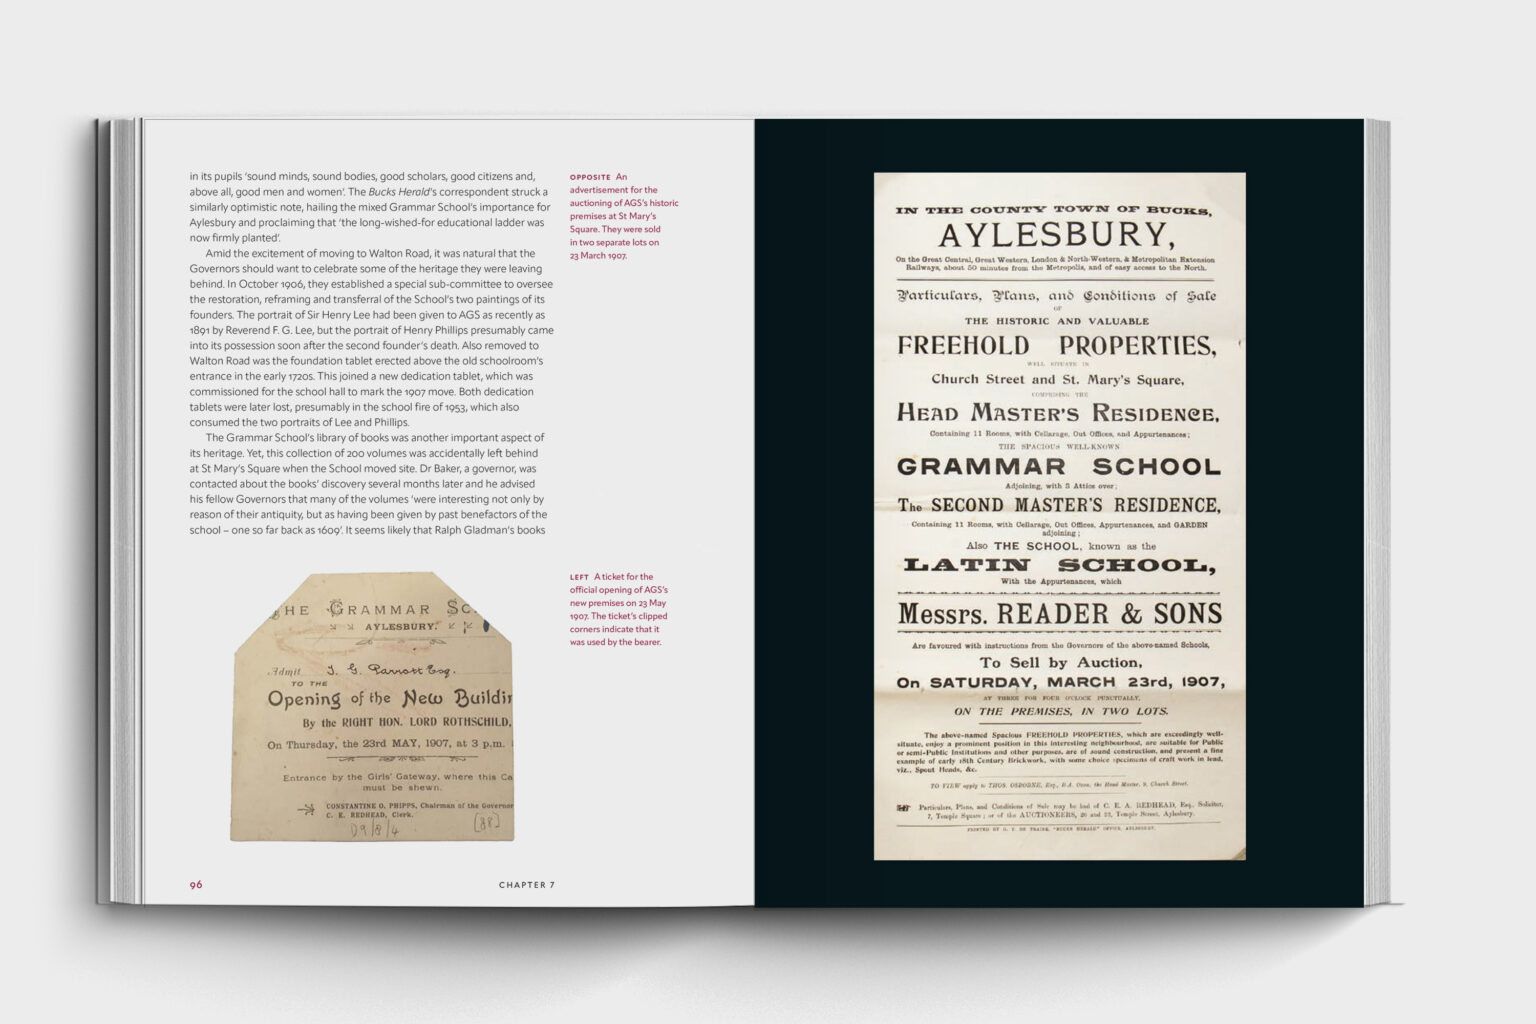 in its pupils ‘sound minds, sound bodies, good scholars, good citizens and,
above all, good men and women’. The Bucks Herald’s correspondent struck a
similarly optimistic note, hailing the mixed Grammar School’s importance for
Aylesbury and proclaiming that ‘the long-wished-for educational ladder was
now firmly planted’.
Amid the excitement of moving to Walton Road, it was natural that the
Governors should want to celebrate some of the heritage they were leaving
behind. In October 1906, they established a special sub-committee to oversee
the restoration, reframing and transferral of the School’s two paintings of its
founders. The portrait of Sir Henry Lee had been given to AGS as recently as
1891 by Reverend F. G. Lee, but the portrait of Henry Phillips presumably came
into its possession soon after the second founder’s death. Also removed to
Walton Road was the foundation tablet erected above the old schoolroom’s
entrance in the early 1720s. This joined a new dedication tablet, which was
commissioned for the school hall to mark the 1907 move. Both dedication
tablets were later lost, presumably in the school fire of 1953, which also
consumed the two portraits of Lee and Phillips.
The Grammar School’s library of books was another important aspect of
its heritage. Yet, this collection of 200 volumes was accidentally left behind
at St Mary’s Square when the School moved site. Dr Baker, a governor, was
contacted about the books’ discovery several months later and he advised
his fellow Governors that many of the volumes ‘were interesting not only by
reason of their antiquity, but as having been given by past benefactors of the
school – one so far back as 1609’. It seems likely that Ralph Gladman’s books
OPPOSITE An
advertisement for the
auctioning of AGS’s historic
premises at St Mary’s
Square. They were sold
in two separate lots on
23 March 1907.
LEFT A ticket for the
official opening of AGS’s
new premises on 23 May
1907. The ticket’s clipped
corners indicate that it
was used by the bearer.
THE GRAMMAR SC
AYLESBURY.
Admit J. G. Parrott Esq.
TO THE
Opening of the New Buildin
By the RIGHT HON. LORD ROTHSCHILD,
On Thursday, the 23rd MAY, 1907, at 3 p.m.
Entrance by the Girls’ Gateway, where this Ca
must be shewn.
CONSTANTINE O. PHIPPS, Chairman of the Governor
C. E. REDHEAD, Clerk.
D9/8/4 [88]
96
CHAPTER 7
IN THE COUNTY TOWN OF BUCKS,
AYLESBURY,
On the Great Central, Great Western, London & North-Western, & Metropolitan Extension
Railways, about 50 minutes from the Metropolis, and of easy access to the North.
Particulars, Plans, and Conditions of Sale
OF
THE HISTORIC AND VALUABLE
FREEHOLD PROPERTIES,
WELL SITUATE IN
Church Street and St. Mary’s Square,
COMPRISING THE
HEAD MASTER’S RESIDENCE,
Containing 11 Rooms, with Cellarage, Out Offices, and Appurtenances;
THE SPACIOUS WELL-KNOWN
GRAMMAR SCHOOL
Adjoining, with 3 Attics over;
The SECOND MASTER’S RESIDENCE,
Containing 11 Rooms, with Cellarage, Out Offices, Appurtenances, and GARDEN
adjoining;
Also THE SCHOOL, known as the
LATIN SCHOOL,
With the Appurtenances, which
Messrs. READER & SONS
Are favoured with instructions from the Governors of the above-named Schools,
To Sell by Auction,
On SATURDAY, MARCH 23rd, 1907,
AT THREE FOR FOUR O’CLOCK PUNCTUALLY,
ON THE PREMISES, IN TWO LOTS.
The above-named Spacious FREEHOLD PROPERTIES, which are exceedingly well-
situate, enjoy a prominent position in this interesting neighbourhood, are suitable for Public
or semi-Public Institutions and other purposes, are of sound construction, and present a fine
example of early 18th Century Brickwork, with some choice specimens of craft work in lead,
viz., Spout Heads, &c.
TO VIEW apply to THOS. OSBORNE, Esq., B.A. Oxon, the Head Master, 9, Church Street.
Particulars, Plans, and Conditions of Sale may be had of C. E. A. REDHEAD, Esq., Solicitor,
7, Temple Square; or of the AUCTIONEERS, 20 and 22, Temple Street, Aylesbury.
PRINTED BY G. T. DE FRAINE, “BUCKS HERALD” OFFICE, AYLESBURY.